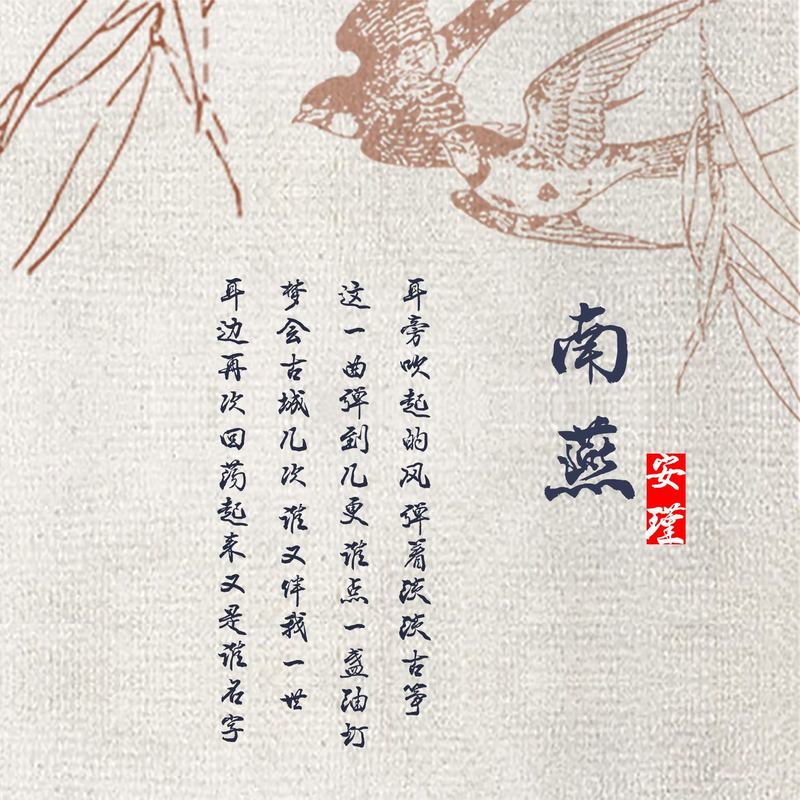 南燕
安瑾
耳旁吹起的风弹着淡淡古筝
这一曲弹到几更谁点一盏油灯
梦会古城几次谁又伴我一世
耳边再次回荡起来又是谁名字